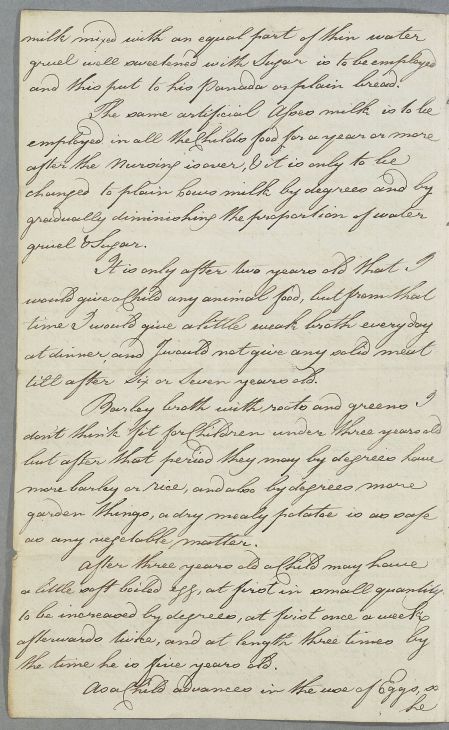 milk mixed with an equal part of thin water
gruel well sweetened with Sugar is to be employed
and this put to his Panada or plain bread.
The same artificial Asses milk is to be
employed in all the Childs food for a year or more
after the Nursing is over, & it is only to be
changed to plain Cows milk by degrees and by
gradually diminishing the proportion of water
gruel & Sugar.
It is only after two years old that I
would give a Child any animal food, but from that
time I would give a little weak broth every day
at dinner, and I would not give any solid meat
till after Six or Seven years old.
Barley broth with roots and greens I
dont think fit for Children under three years old
but after that period they may by degrees have
more barley or rice, and also by degrees more
garden things, a dry mealy potatoe is as safe
as any vegetable matter.
After three years old a Child may have
a little soft boiled egg, at first in small quantity
to be increased by degrees, at first once a week
afterwards twice, and at length three times by
the time he is five years old.
As a Child advances in the use of Eggs, so
he